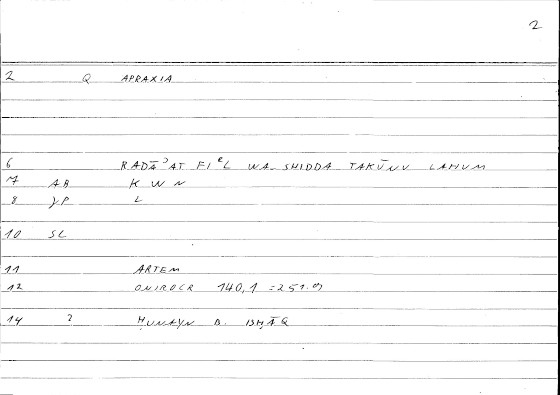 2
2 Q APRAXIA
6 RADĀʾAT FIʿL WA-SHIDDA TAKŪNU LAHUM
7 AB K W N
8 JP L
10 SL
11 ARTEM
12 ONIROCR 140,1 = 251.9
14 2 ḤUNAYN B. ISḤĀQ